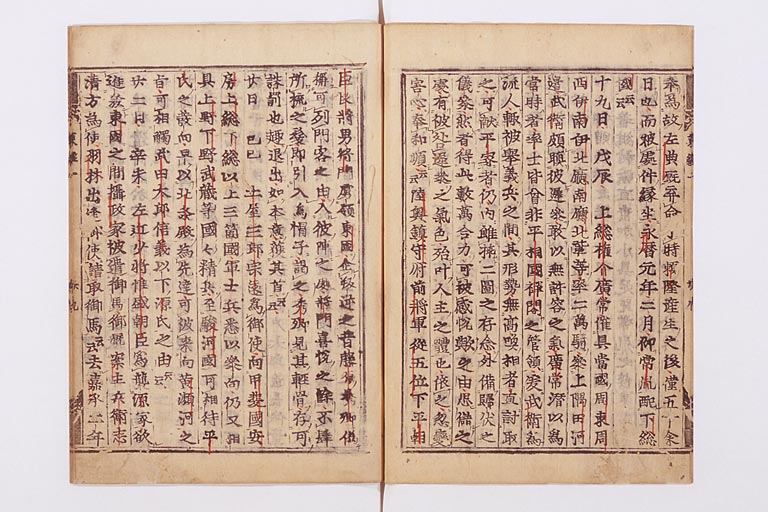 奉為故左典厩弃命于時擇隆産生之後僅五十余
日也而被處件縁坐永暦元年二月仰常胤配下総
國云云
十九日 戊辰 上総權介廣常催具當國周東周
西伊南伊北廳南廳北輩等率二萬騎參上隅田河
邊武衛頗瞋彼遲參敢以無許容之氣廣常潜以爲
當時者率士皆曾非平相國禪閤之管領爰武衛爲
流人輙被舉義兵之間其形勢無高喚相者直討取
之可獻平家者仍内雖插二圖之存念外備歸伏之
儀參然者得此數萬合力可被感悦歟之由思儲之
處有被咎遲參之氣色殆叶人主之體也依之忽變
害心奉和順云云陸奥鎮守府前將軍從五位下平朝
臣良將男將門虜領東國企叛逆之昔藤原秀郷偽
稱可列門客之由入彼陣之處將門喜悦之餘不肆
所梳之髮即引入烏帽子謁之秀郷見其輕骨存可
誅罰也趣退出如本意獲其首云云
廿日 己巳 土屋三郎宗遠為御使向甲斐國安
房上総下総以上三箇國軍士兵悉以參向仍又相
具上野下野武藏等國々精兵至駿河國可相待平
氏之發向早以北條殿為先達可被來向黄瀬河之
旨可相觸武田太郎信義以下源氏之由云云
廿二日 辛未 左近少將惟盛朝臣爲襲源家欲
進發東國之間攝政家被遣御馬御廐案主兵衛志
清方爲使羽林出逢御使請取御馬云云去嘉承二年